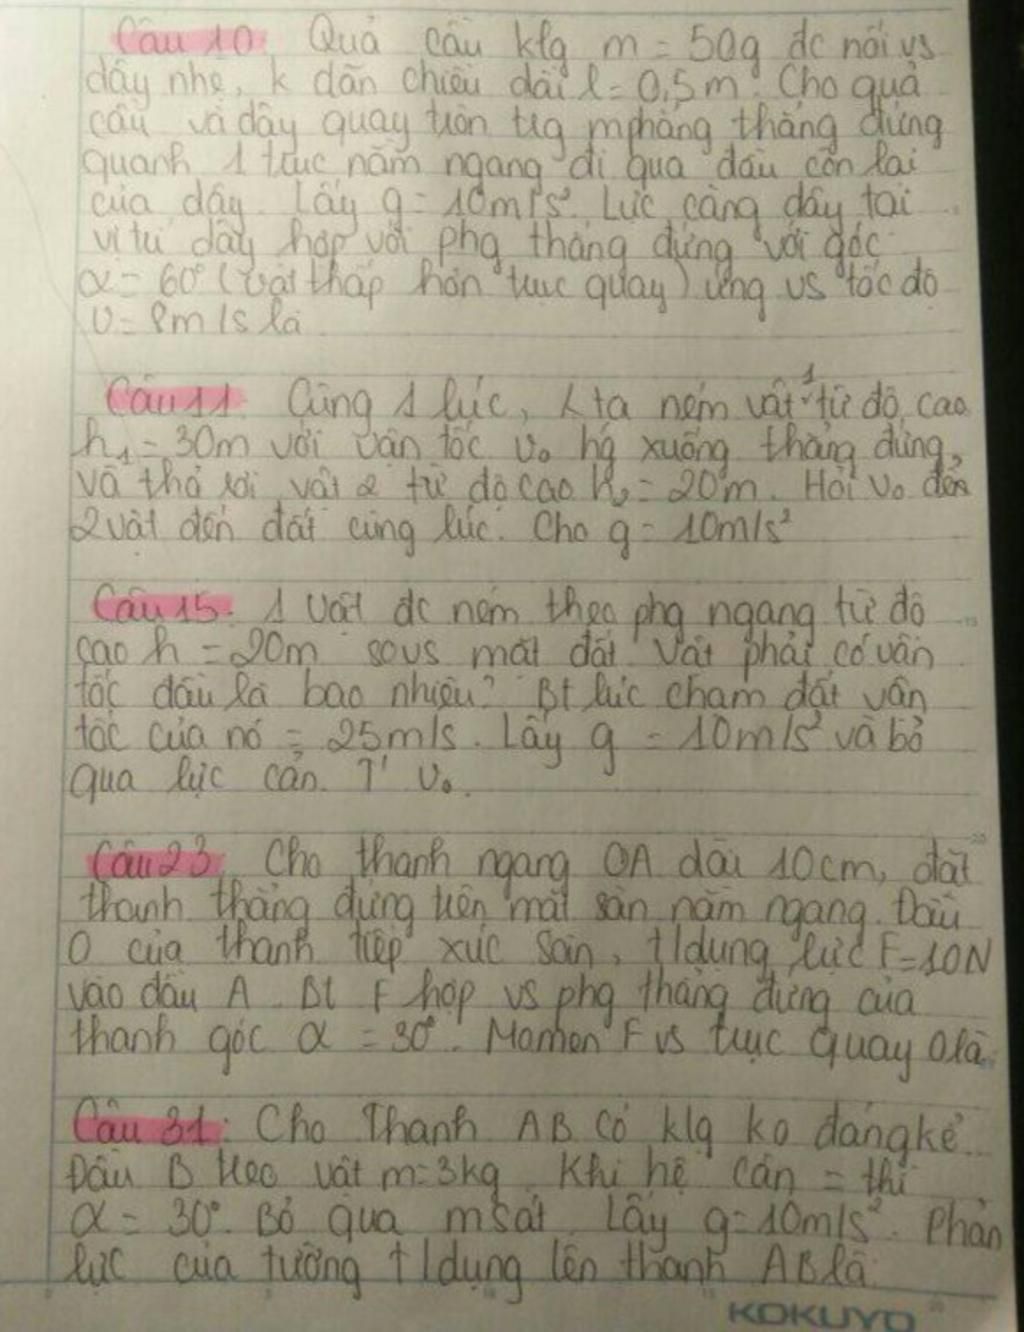 Câu 10 Quả cầu klg m = 50g đc nối vs
dây nhẹ, k dãn chiều dài l = 0,5m. Cho quả
cầu và dây quay tròn trg mphẳng thẳng đứng
quanh 1 trục nằm ngang đi qua đầu còn lại
của dây. Lấy g = 10m/s². Lực căng dây tại
vị trí dây hợp với phg thẳng đứng với góc
α = 60° (vật thấp hơn trục quay) ứng vs tốc độ
v = 8m/s là
Câu 11 Cùng 1 lúc, k ta ném vật 1 từ độ cao
h₁ = 30m với vận tốc v₀ hg xuống thẳng đứng,
và thả rơi vật 2 từ độ cao h₂ = 20m. Hỏi v₀ đến
2 vật đến đất cùng lúc. Cho g = 10m/s²
Câu 15. 1 vật đc ném theo phg ngang từ độ
cao h = 20m sovs mặt đất. Vật phải có vận
tốc đầu là bao nhiêu? Bt lúc chạm đất vận
tốc của nó = 25m/s. Lấy g = 10m/s² và bỏ
qua lực cản. T' v₀.
Câu 23, Cho thanh ngang OA dài 10cm, đặt
thanh thẳng đứng trên mặt sàn nằm ngang. Đầu
O của thanh tiếp xúc sàn, t/dụng lực F=10N
vào đầu A. Bt F hợp vs phg thẳng đứng của
thanh góc α = 30°. Momen F vs trục quay O là
Câu 31: Cho Thanh AB có klg ko đángkể
Đầu B treo vật m=3kg. Khi hệ cân = thì
α = 30°. Bỏ qua msát. Lấy g=10m/s². Phản
lực của tường t/dụng lên thanh AB là:
KOKUYO